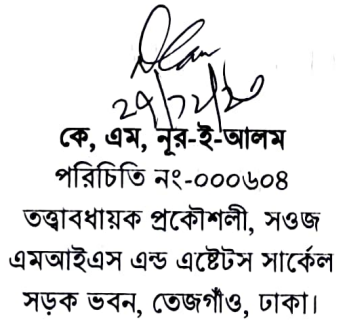 কে, এম, নূর-ই-আলম
পরিচিতি নং-০০০৬০৪
তত্ত্বাবধায়ক প্রকৌশলী, সওজ
এমআইএস এন্ড এষ্টেটস সার্কেল
সড়ক ভবন, তেজগাঁও, ঢাকা।